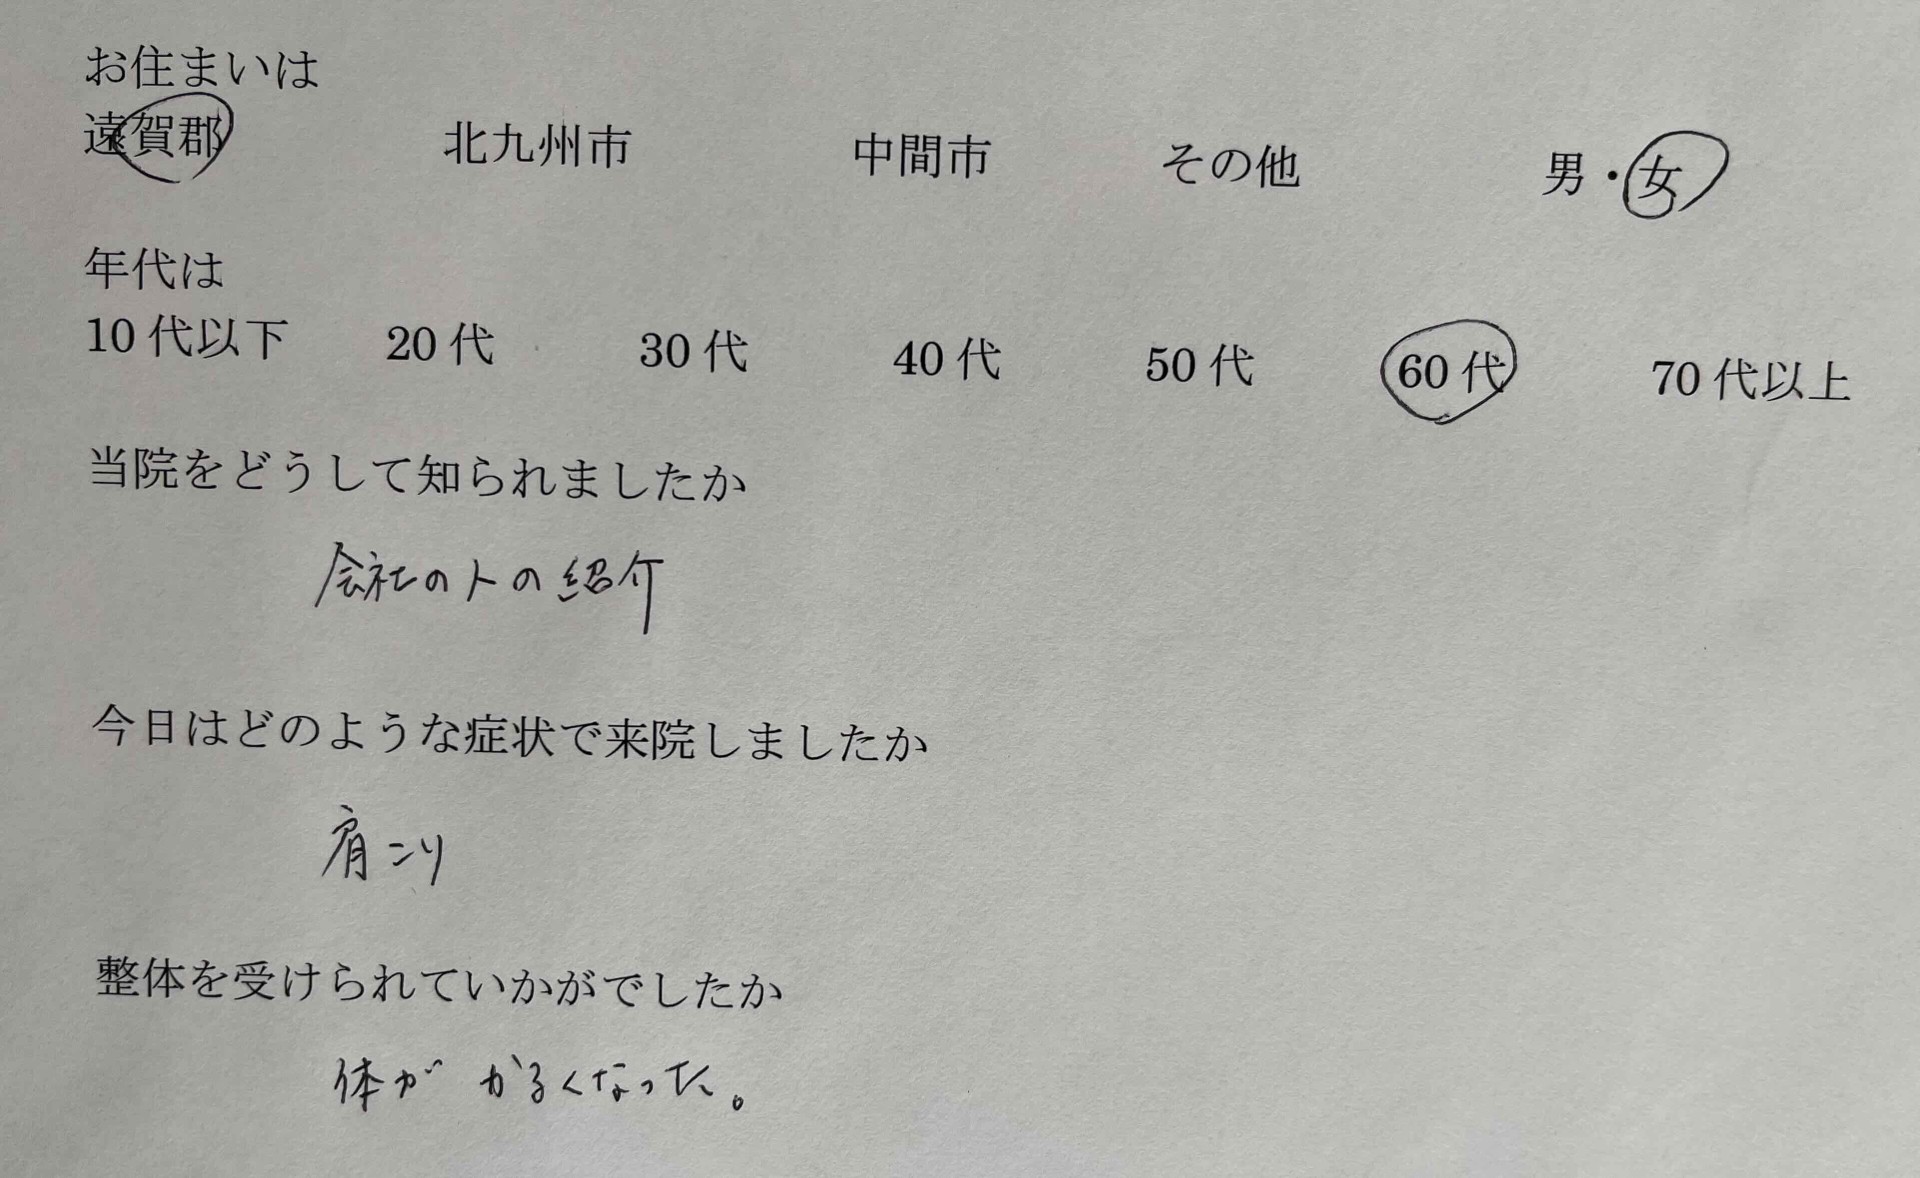 お住まいは
遠賀郡 北九州市 中間市 その他 男・女
年代は
10代以下 20代 30代 40代 50代 60代 70代以上
当院をどうして知られましたか
会社の人の紹介
今日はどのような症状で来院しましたか
肩こり
整体を受けられていかがでしたか
体が かるくなった。